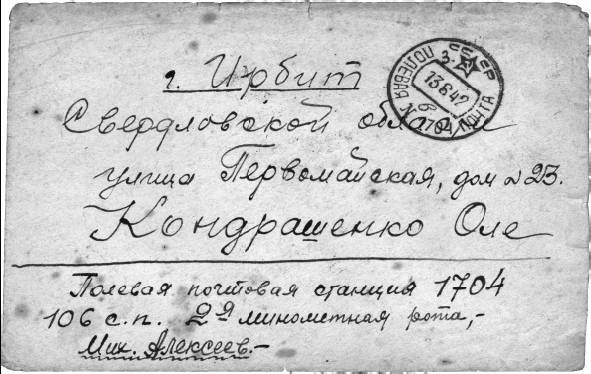 г. Ирбит
Свердловской области
улица Первомайская, дом № 23.
Кондрашенко Оле
Полевая почтовая станция 1704
106 с.п. 2я минометная рота,-
Мих. Алексеев.-
СССР
ПОЛЕВАЯ ПОЧТА
13 8 42
N 1704